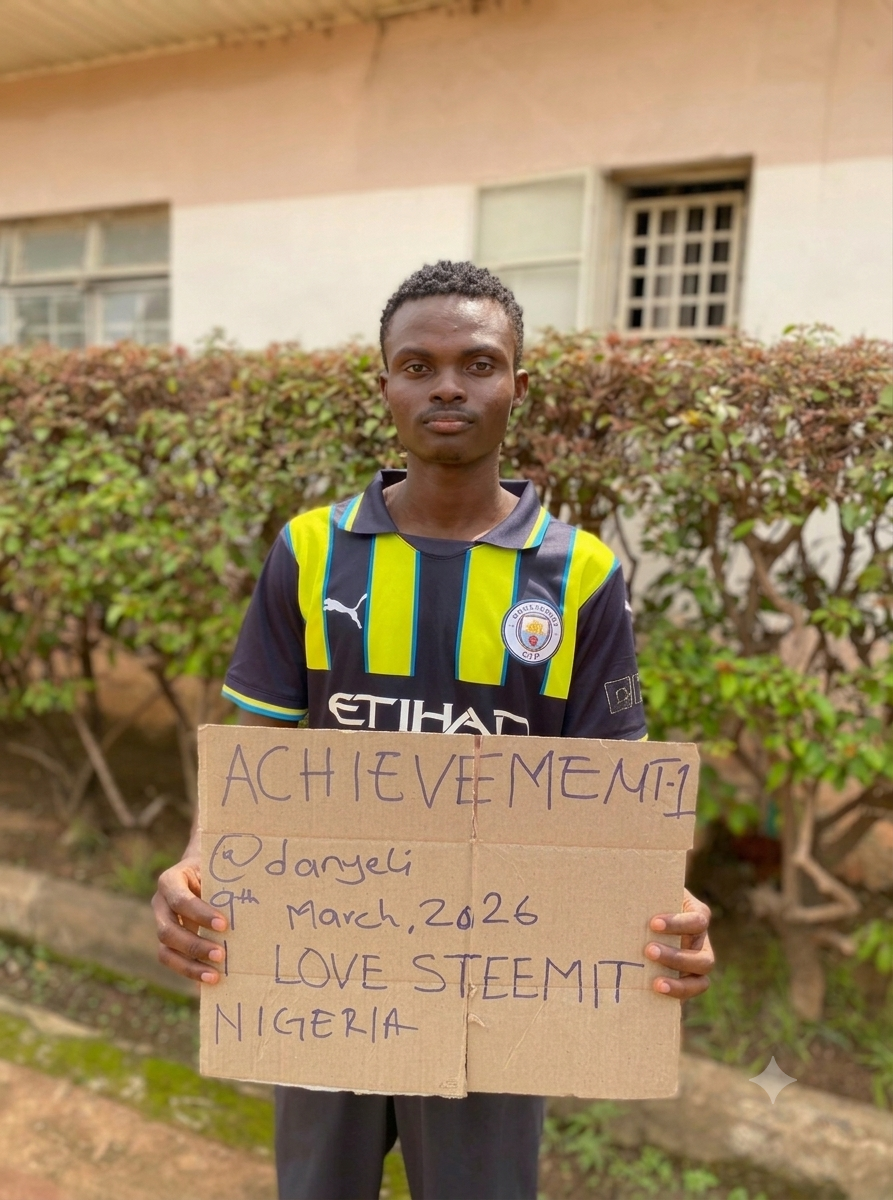 ETIHAD
ACHIEVEMENT-1
@danyeli
9th March, 2026
I LOVE STEEMIT
NIGERIA